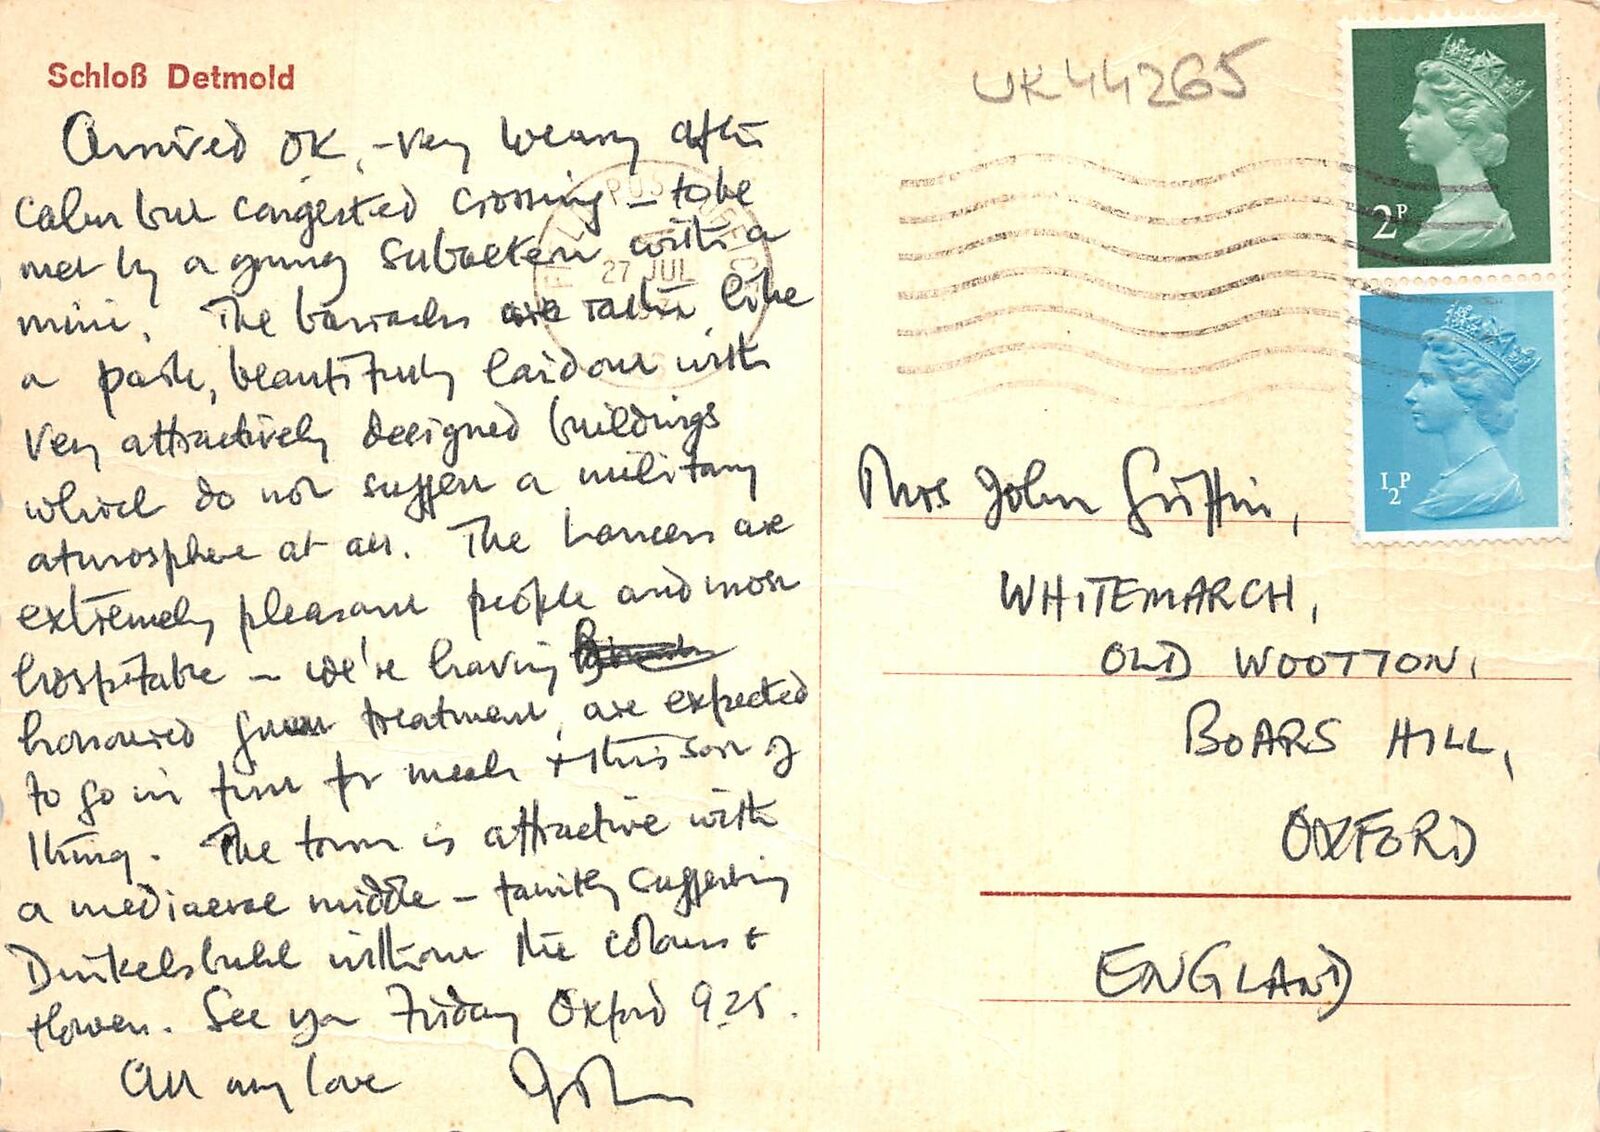 Schloß Detmold
Arrived OK, - very weary after
calm but congested crossing - to be
met by a young subaltern with a
mini. The barracks are rather like
a park, beautifully laid out with
very attractively designed buildings
which do not suggest a military
atmosphere at all. The Lancers are
extremely pleasant people and most
hospitable - we're having
honoured guest treatment, are expected
to go in first for meals + this sort of
thing. The town is attractive with
a mediaeval middle - faintly suggesting
Dinkelsbuhl without the colours +
flowers. See you Friday Oxford 9.25.
All my love John
UK44265
2P
½P
FIELD POST OFFICE
27 JUL
Mrs John Griffin,
WHITEMARCH,
OLD WOOTTON,
BOARS HILL,
OXFORD
ENGLAND